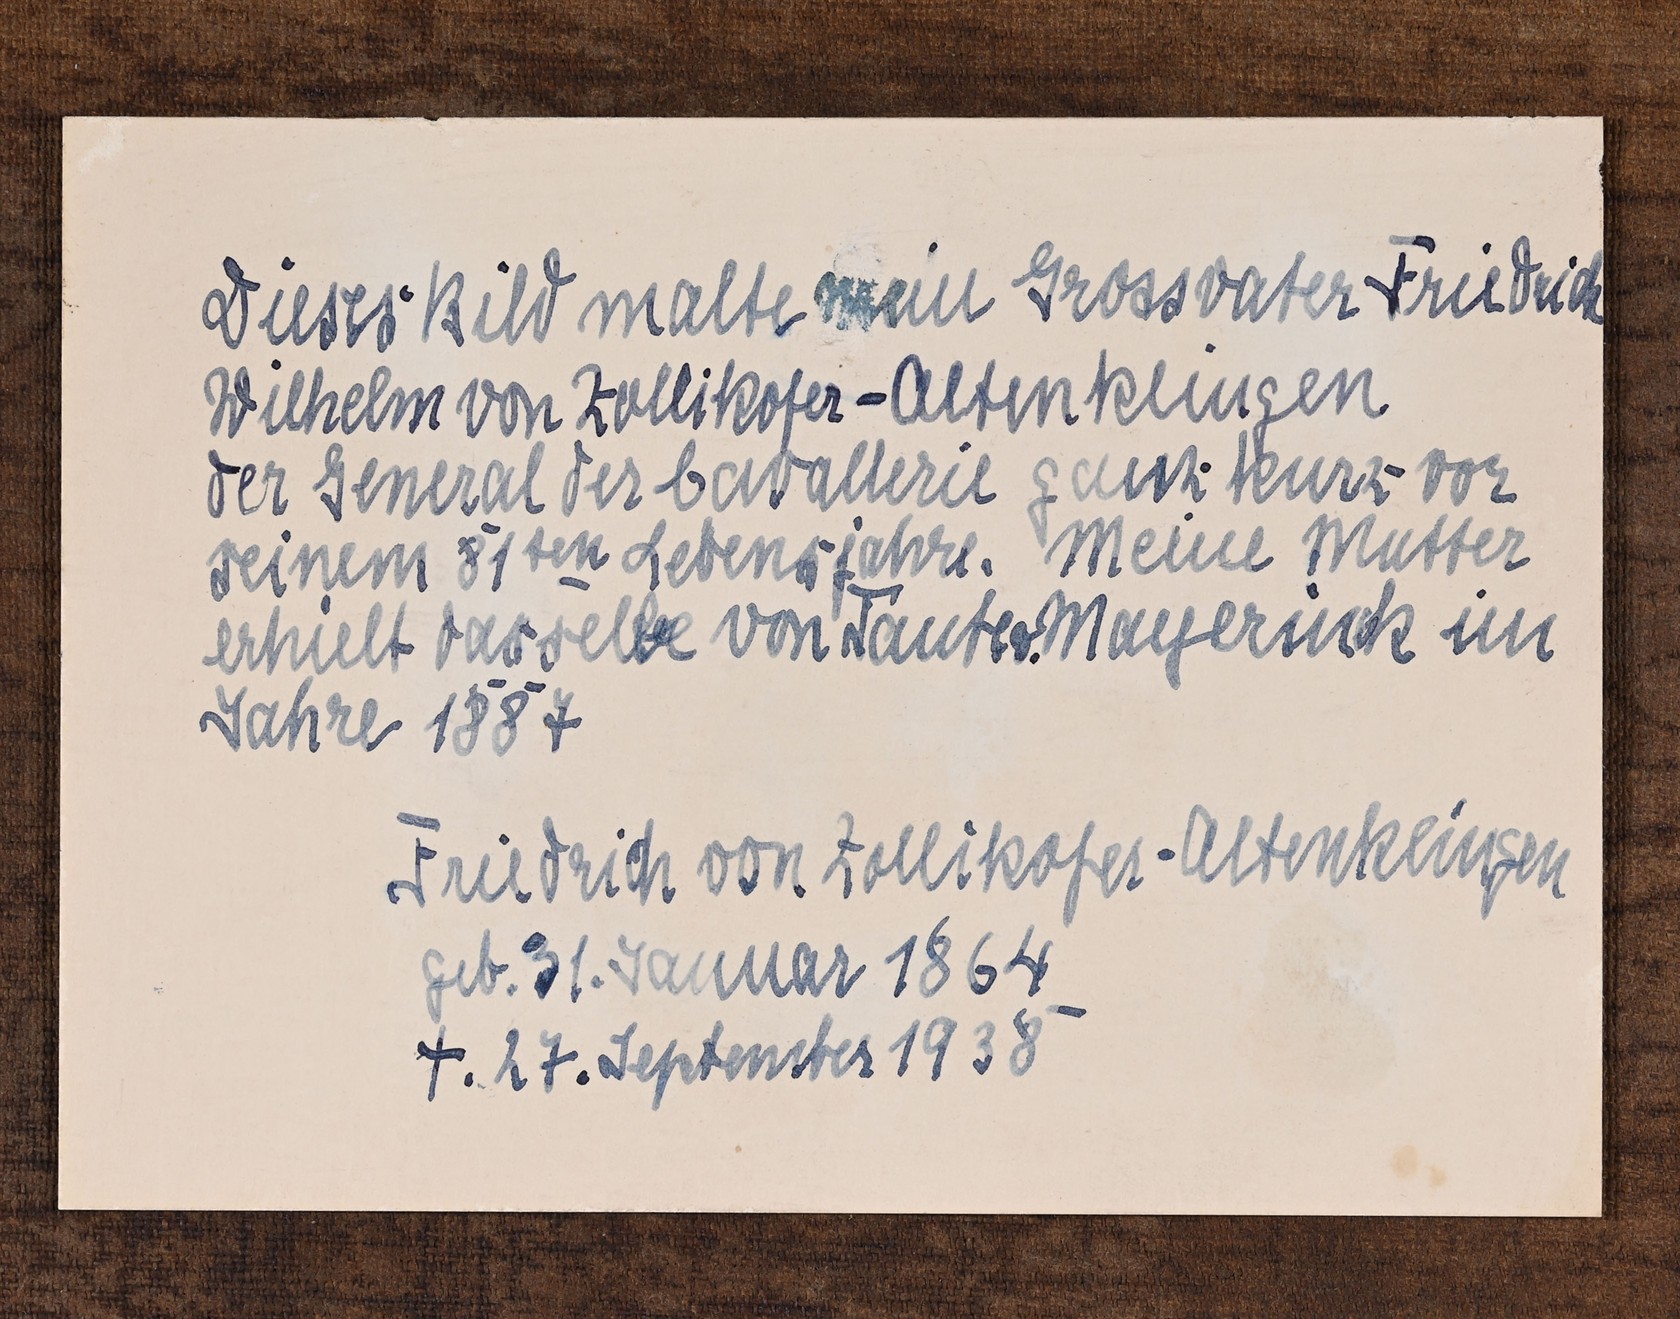 Dieses Bild malte mein Grossvater Friedrich
Wilhelm von Zollikofer-Altenklingen
der General der Cavallerie ganz kurz vor
seinem 81ten Lebensjahre. Meine Mutter
erhielt dasselbe von Tante v. Mayerinck im
Jahre 1887
Friedrich von Zollikofer-Altenklingen
geb. 31. Januar 1864
†. 27. September 1938